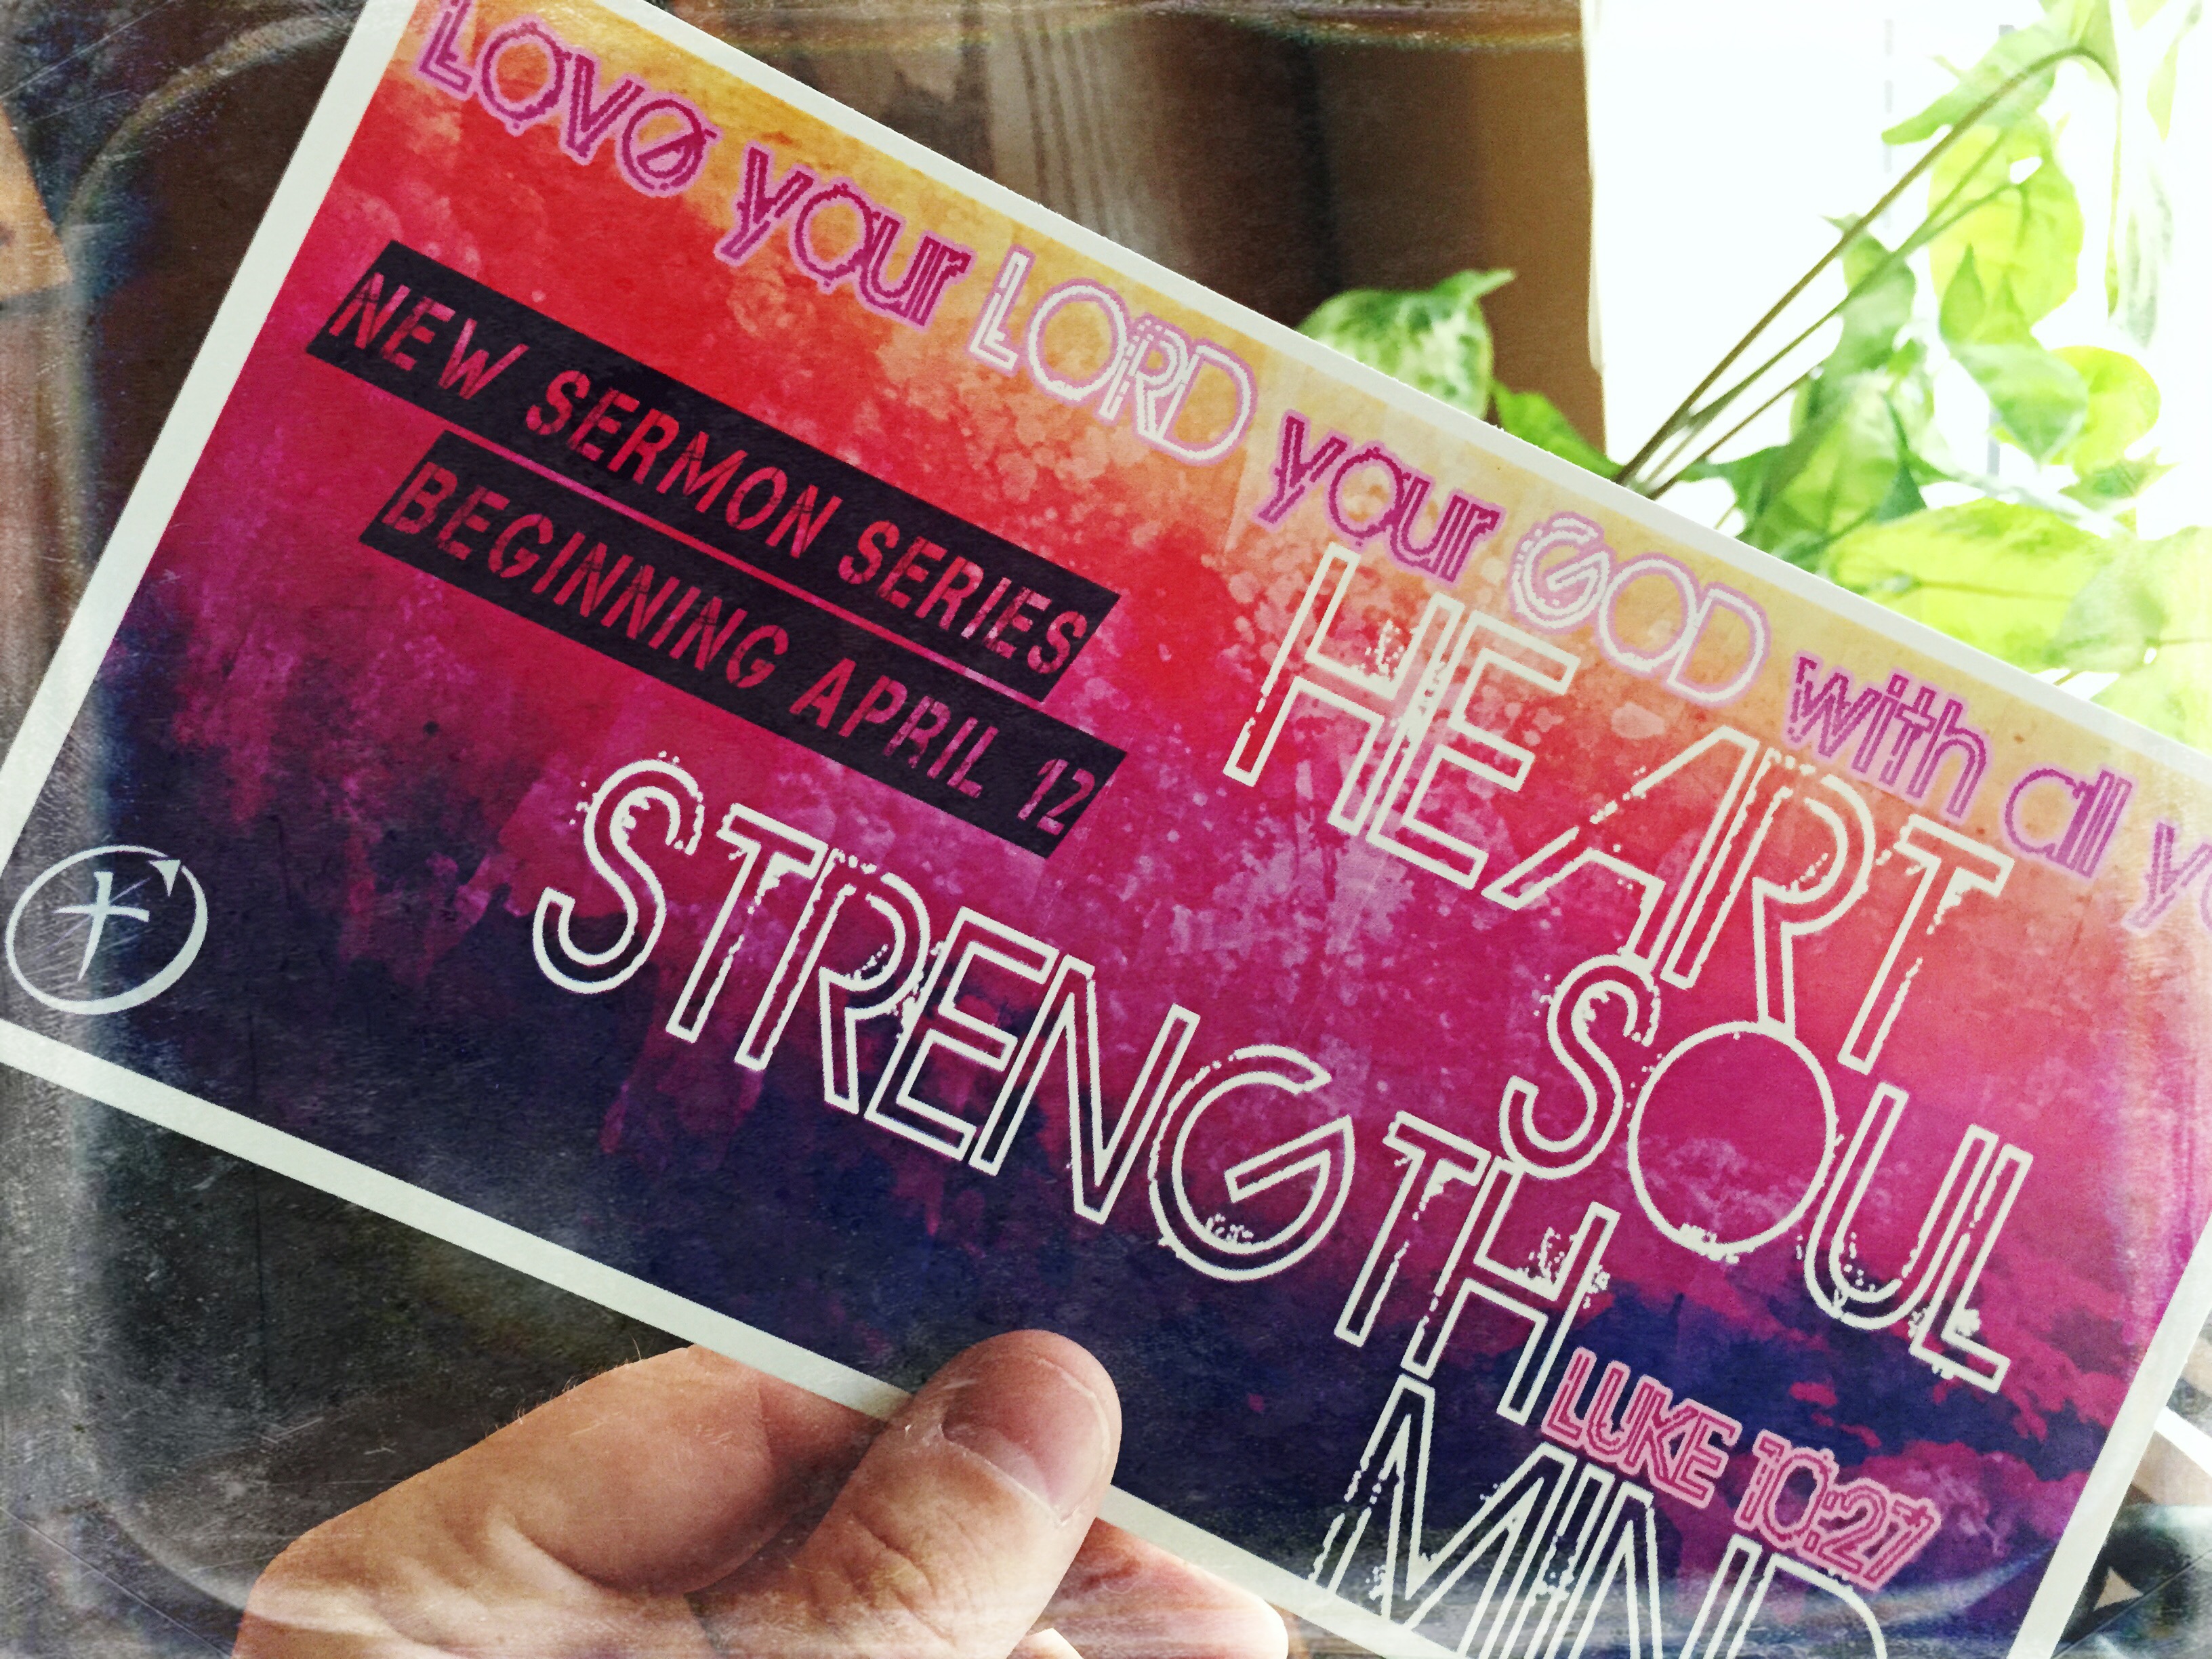 Love your LORD your GOD with all y
NEW SERMON SERIES
BEGINNING APRIL 12
HEART
SOUL
STRENGTH
MIND
LUKE 10:27